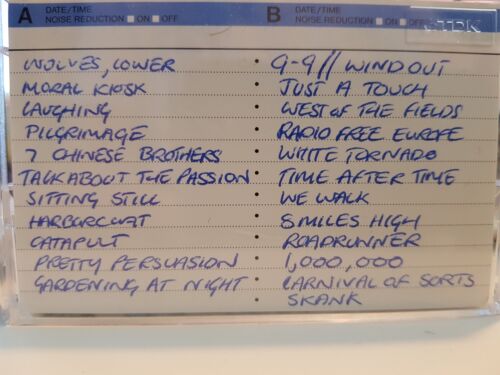 A DATE/TIME NOISE REDUCTION ON OFF
B DATE/TIME NOISE REDUCTION ON OFF
TDK
WOLVES, LOWER
MORAL KIOSK
LAUGHING
PILGRIMAGE
7 CHINESE BROTHERS
TALK ABOUT THE PASSION
SITTING STILL
HARBORCOAT
CATAPULT
PRETTY PERSUASION
GARDENING AT NIGHT
9-9 // WINDOUT
JUST A TOUCH
WEST OF THE FIELDS
RADIO FREE EUROPE
WHITE TORNADO
TIME AFTER TIME
WE WALK
SMILES HIGH
ROADRUNNER
1,000,000
CARNIVAL OF SORTS
SKANK